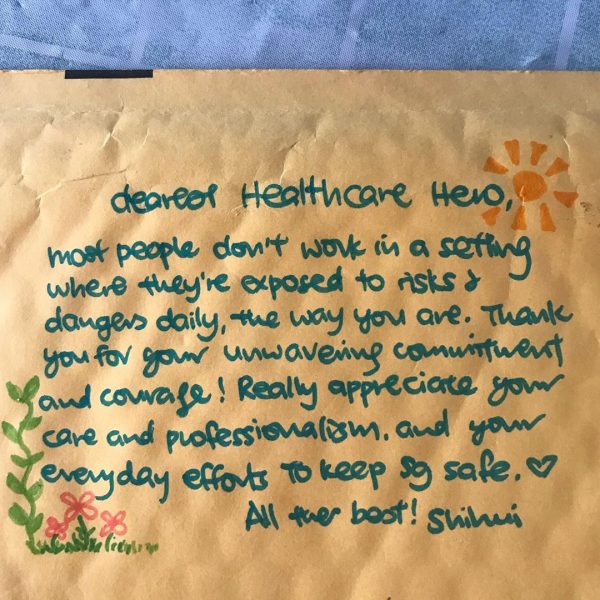 dearest Healthcare Hero,
most people don't work in a setting
where they're exposed to risks &
dangers daily, the way you are. Thank
you for your unwavering commitment
and courage! Really appreciate your
care and professionalism, and your
everyday efforts to keep sg safe. ♡
All the best! Shihui